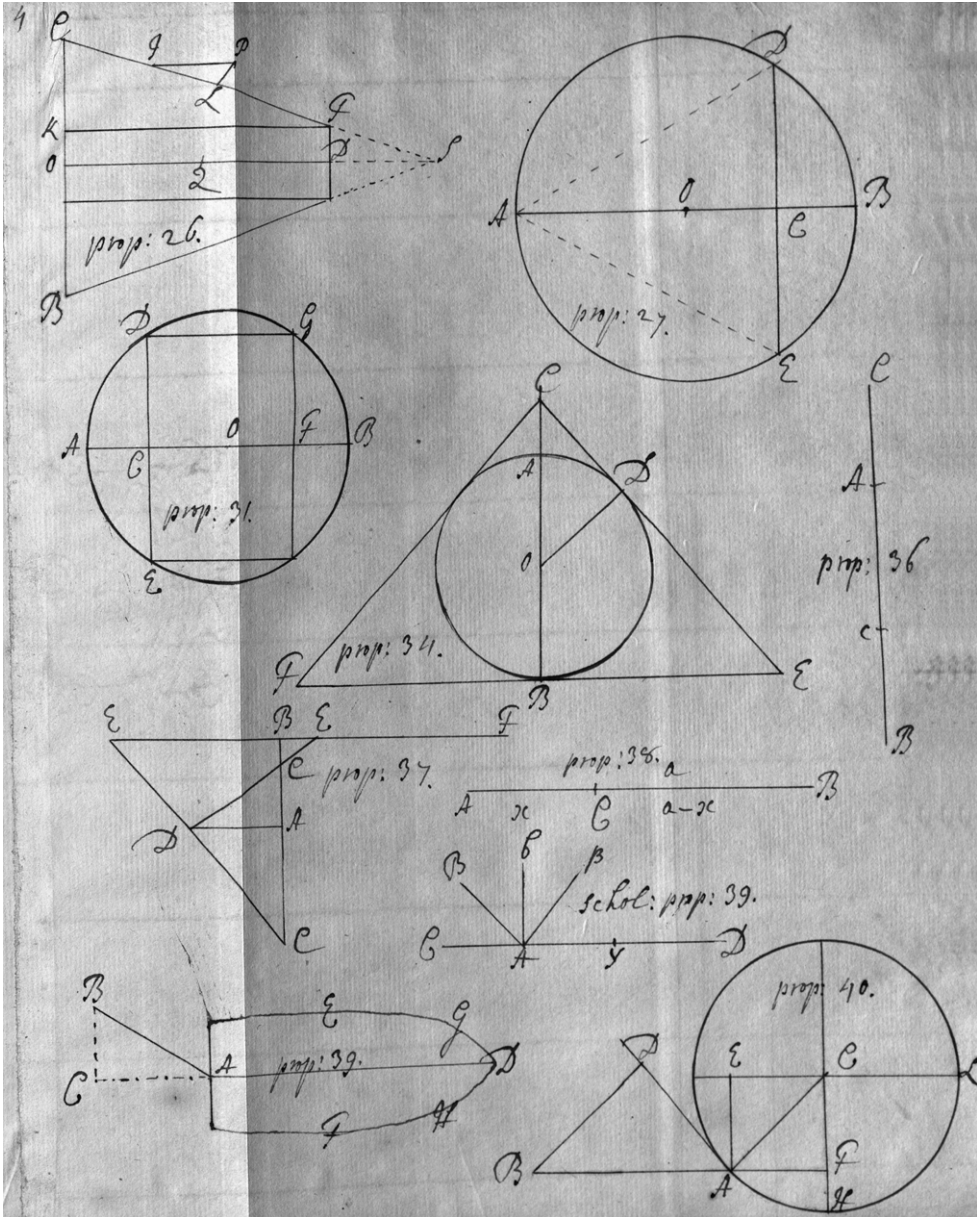 4
C
I
P
L
K
F
O
D
S
Q
prop: 26.
B
D
A
O
B
C
prop: 27.
E
D
G
A
O
F
B
C
prop: 31.
E
C
A
D
O
prop: 34.
F
B
E
C
A
prop: 36
c
B
E
B
E
F
C
prop: 37.
D
A
C
prop: 38.
a
A
x
C
a-x
B
B
b
β
schol: prop: 39.
C
A
y
D
B
E
G
A
prop: 39.
D
C
F
H
prop: 40.
D
E
C
L
B
A
F
H